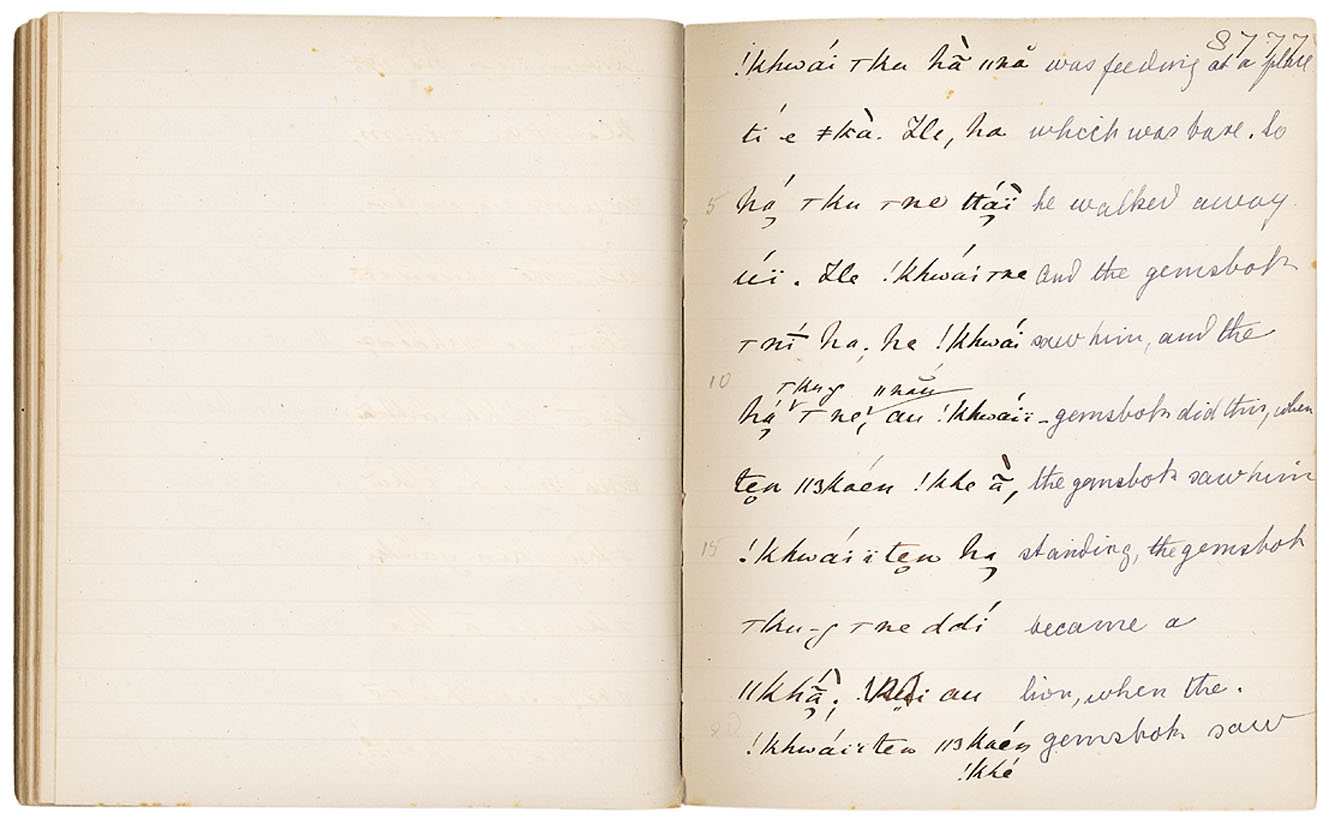 8777
!khwái ⊤ku hã̀ ǁnǎ was feeding at a place
tí e ǂkà. He, ha which was bare. So
5 hą́ ⊤ku ⊤ne ttą́ï he walked away
úï. He !khwái ⊤ne and the gemsbok
⊤ní ha, he !khwái saw him, and the
10 ⊤ku-g ǁnǎu
hą́ ⊤ne, au !khwáiï- gemsbok did this, when
tẹn ǁ3kaén !khe ã̀, the gemsbok saw him
15 !khwáiïtẹn hą standing, the gemsbok
⊤ku-g ⊤ne ddí became a
ǁkhą̃̀; au lion, when the.
20 !khwáiïten ǁ3kaén gemsbok saw
!khé